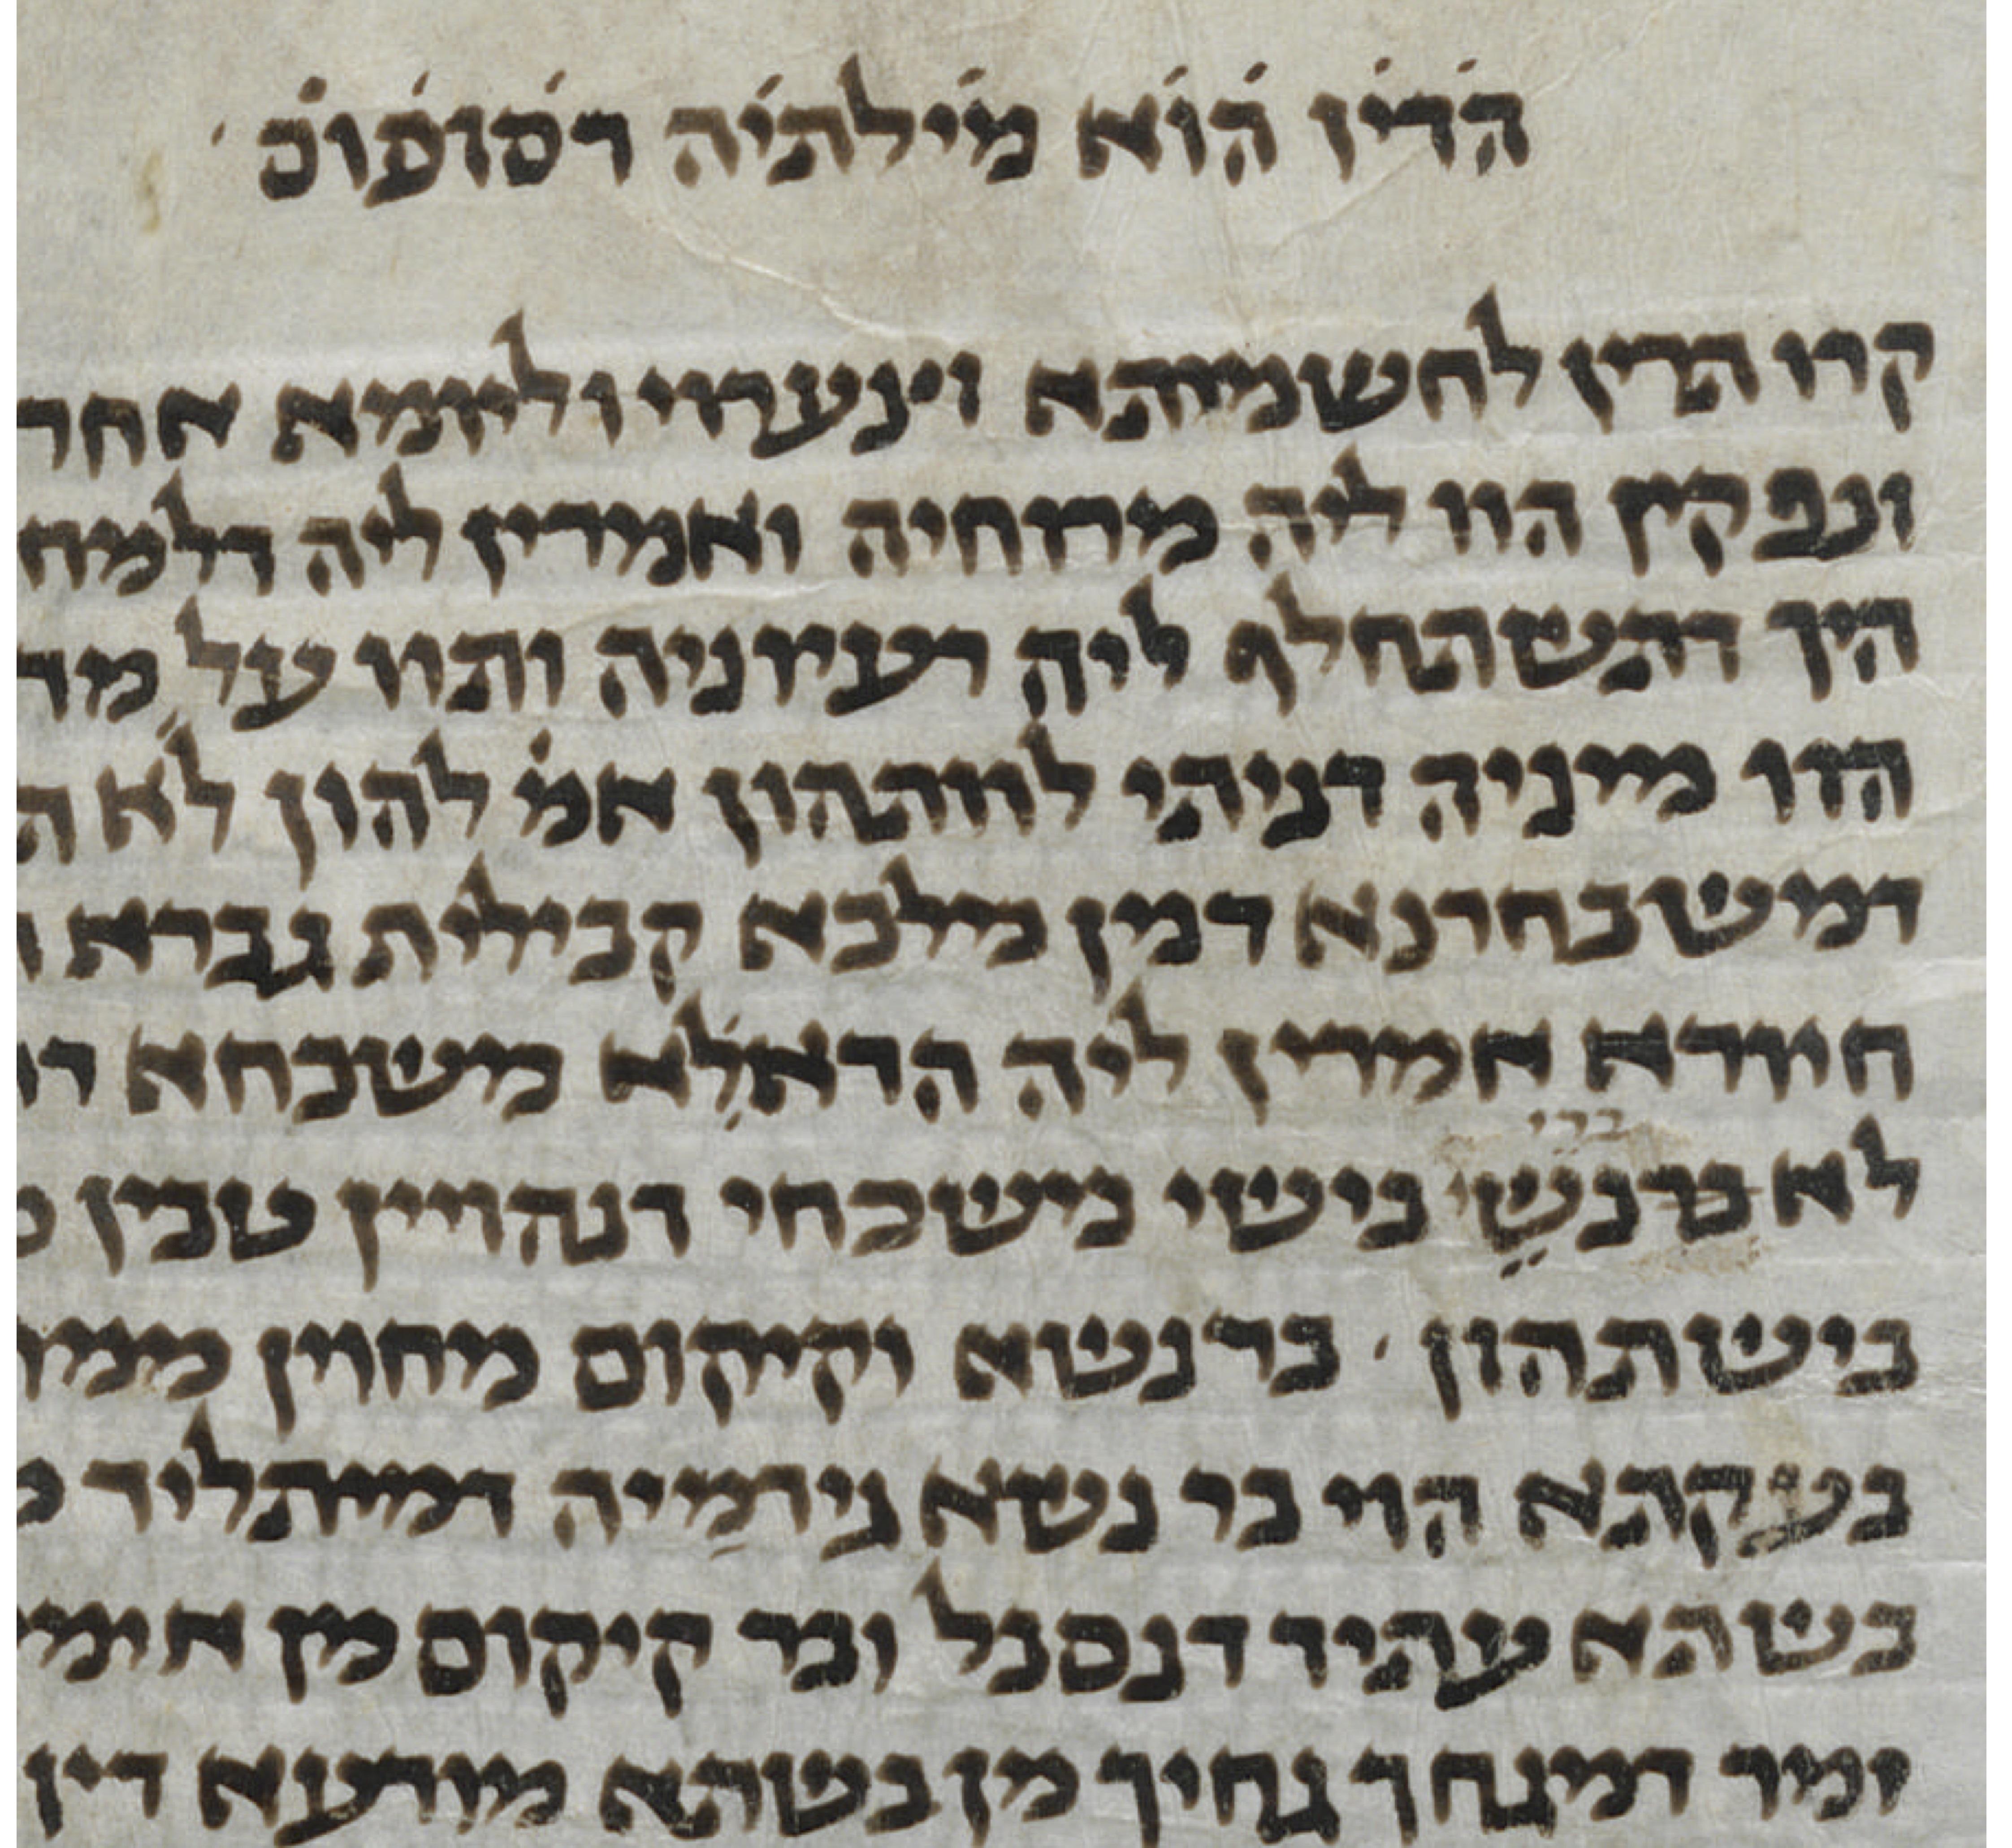 הדין הוא מילתיה דסופוס
קרו הדין לחשמיתא וינערוי וליומא אחר
ונפקין הוו ליה מרוחיה ואמרין ליה דלמה
היך דהשתחלף ליה רעיוניה ותוו על
הוו מיניה דניתי לוותהון אמ להון לא
דמשבחרנא דמן מלכא קבילית גברא
חיורא אמרין ליה הדא לא משכחא
ברי
לא ברנשי בישי משכחי דנהויין טבין
בישתהון ׳ ברנשא וקיקום מחוין
בעקתא הוי בר נשא גירמיה דמיתליד
בשתא עתיד דנסבל ובר קיקום מן
זמר דמגחך גחיך מן בשתא מודעא דין